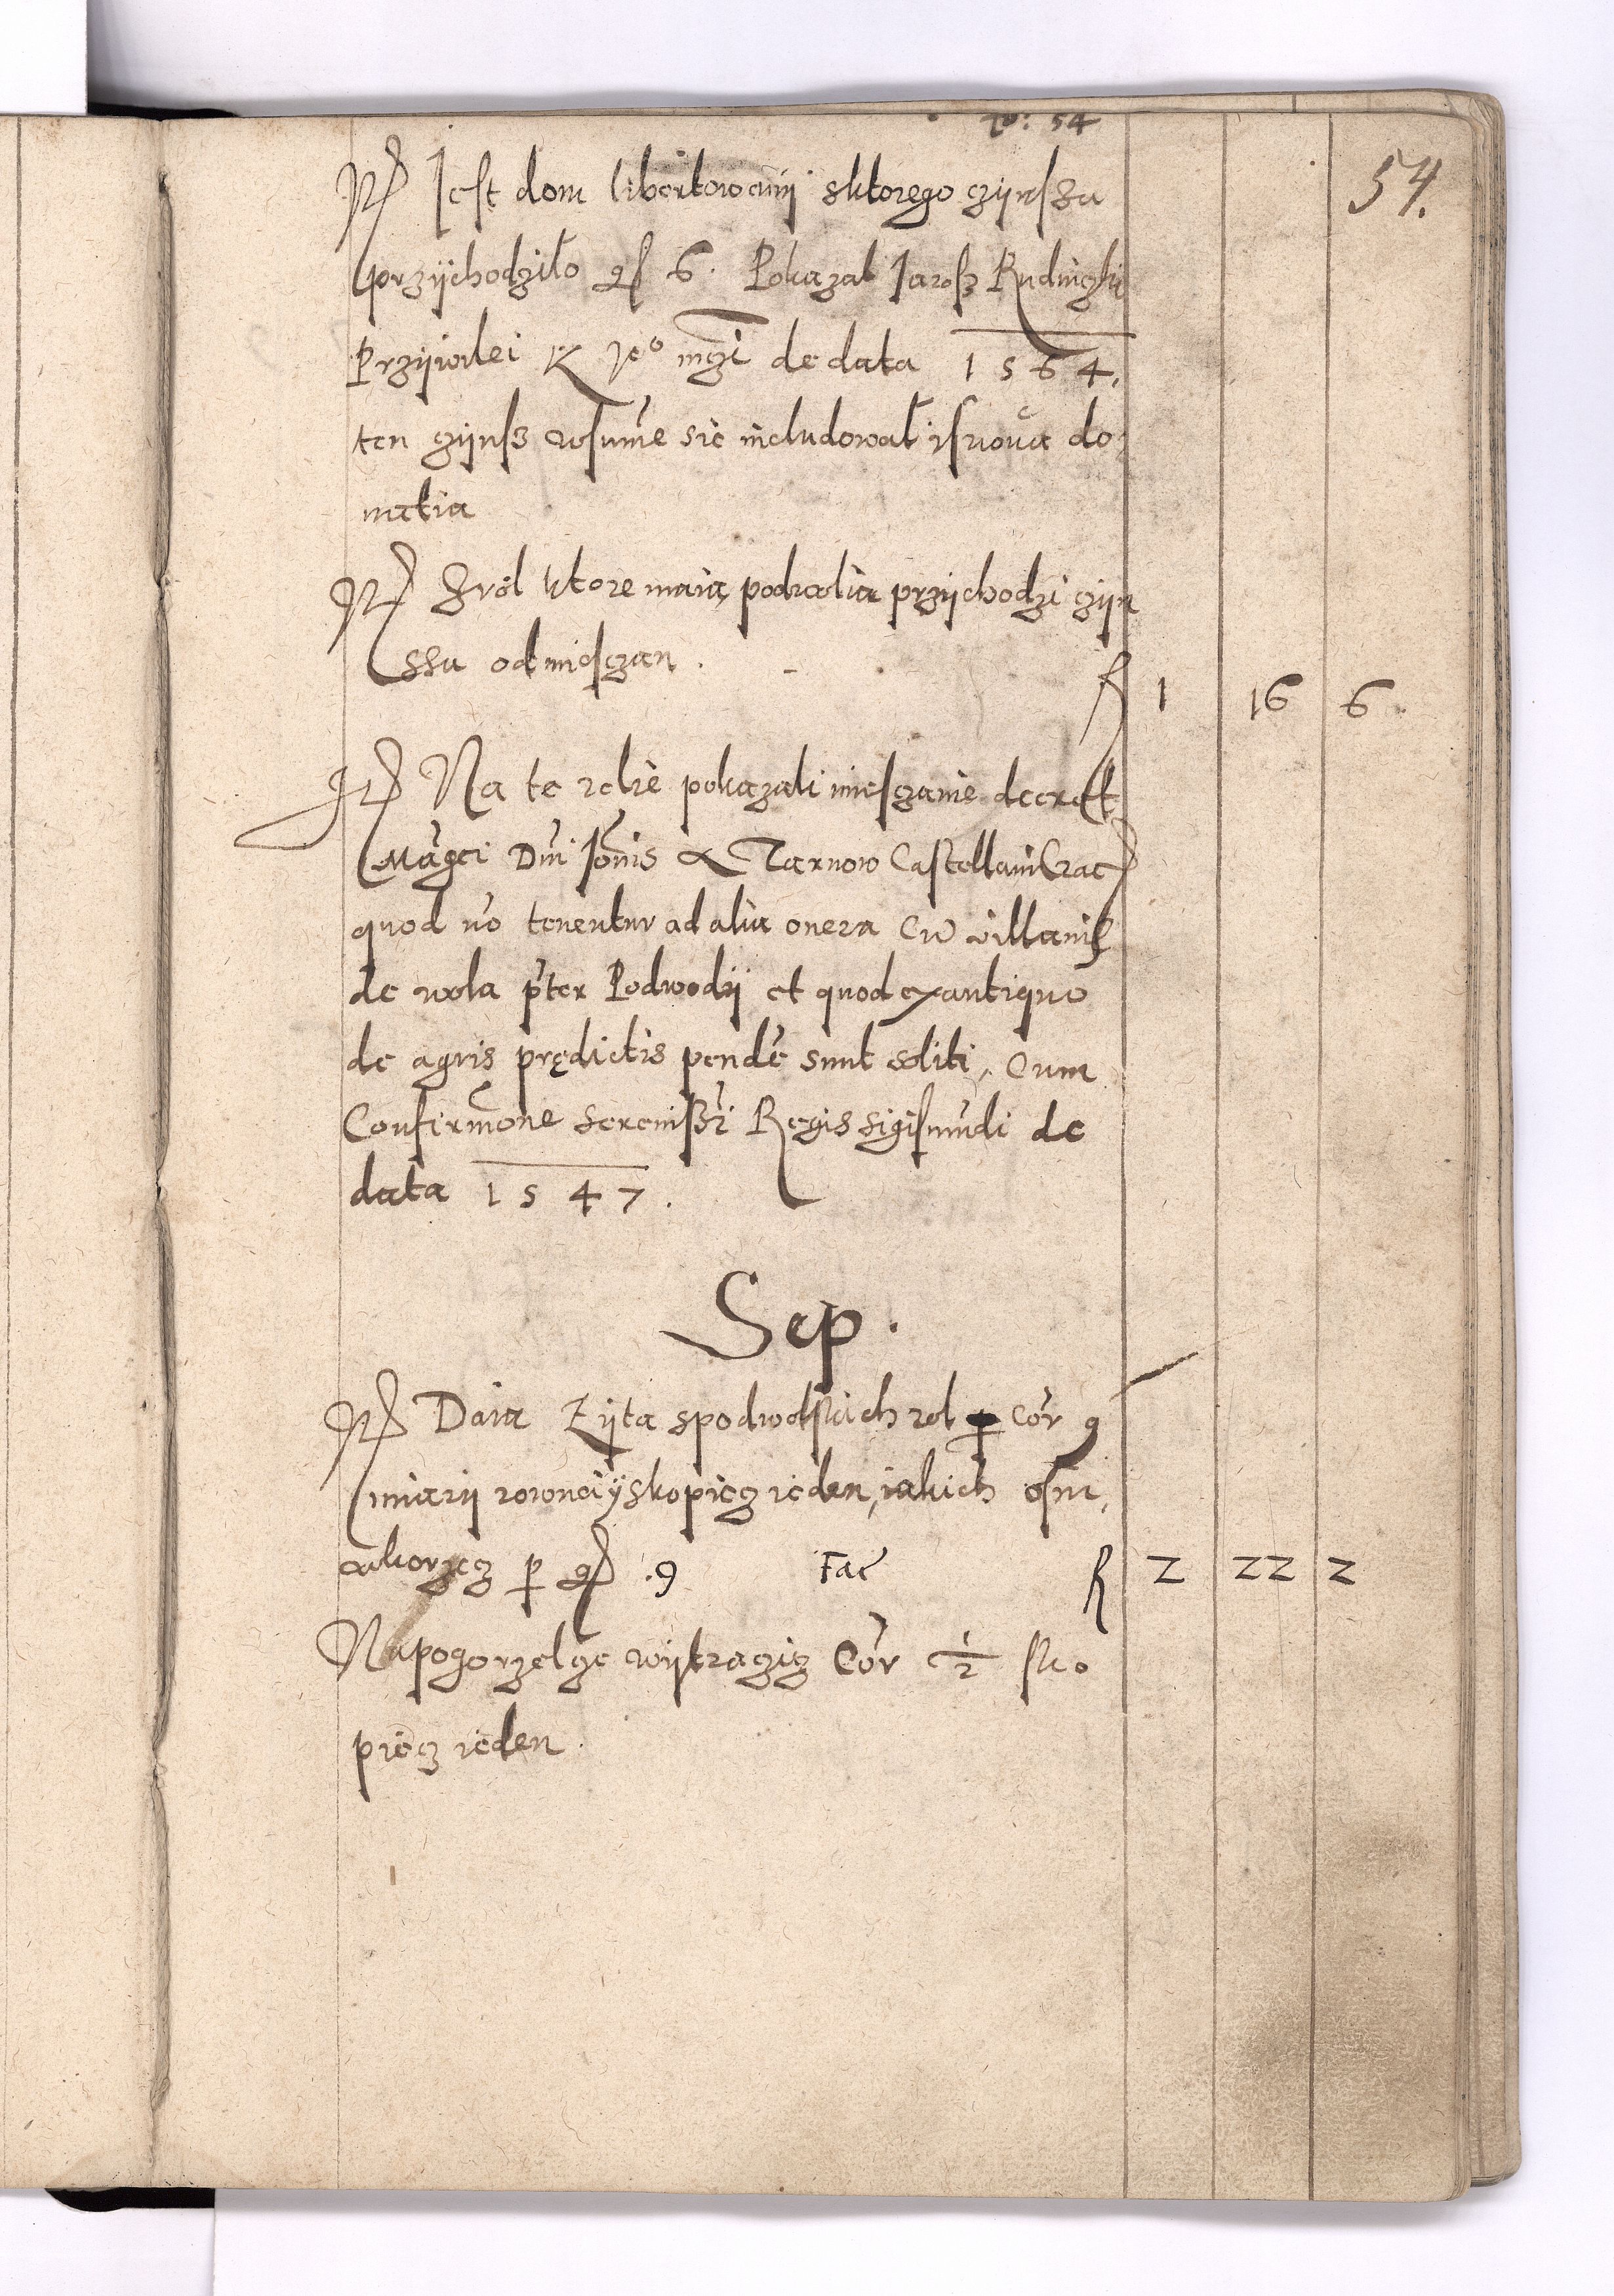 fo: 54
54.
Jt Jest dom libertowanij sktorego czijnszu
przijchodziło gr 6. Pokazał Jarosz Rudniczki
Przijwilei K Jeo mczi de data 1564.
ten czijnsz wsumę sie includował isnoua do-
natia
Jt Zról ktore maią podwolią przijchodzi czijn
ssu od miesczan. R 1 16 6
Jt Na te rolie pokazali miesczanie decrett
Magci Dni Joñis a Tarnow Castellani Crac
quod nō tenentur ad alia onera Cū villanis
de wola pter Podwodij et quod ex antiquo
de agris prędictis pendē sunt soliti, Cum
Confirmōne serenissi Regis sigismūdi de
data 1547.
Sep.
Jt Daia Zijta spodwolskich rol p Cor 9
miarij rownei ij skopiecz ieden, iakich osm,
akorzecz p gr 9 Fac R 2 22 2
Na pogorzelcze wijtraczicz Cor ½ sko
piecz ieden.